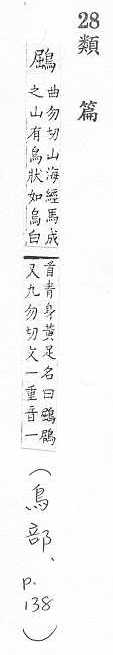 28 類篇
鶌
曲勿切山海經馬成
之山有鳥狀如烏白
首青身黃足名曰鶌鶋
又九勿切文一重音一
(鳥部、p.138)